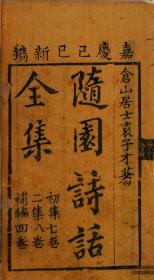 嘉慶己巳新鐫
倉山居士袁子才著
隨園詩話
全集
初集七卷
二集八卷
補編四卷